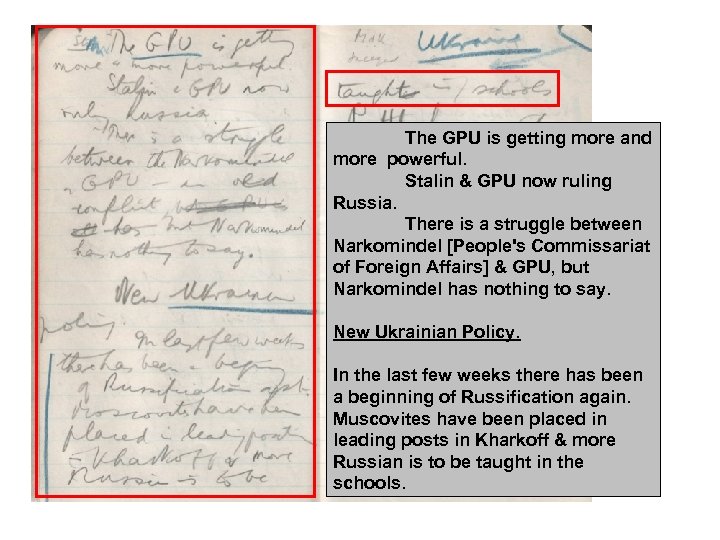 The GPU is getting
more & more powerful.
Stalin & GPU now
ruling Russia.
There is a struggle
between the Narkomindel
& GPU – an old
conflict but
has but Narkomindel
has nothing to say.
New Ukrainian
policy.
In last few weeks
there has been a beginng
of Russification again.
Muscovites have been
placed in leading posts
in Kharkoff & more
Russian is to be
Ukraine
taught in schools
The GPU is getting more and
more powerful.
Stalin & GPU now ruling
Russia.
There is a struggle between
Narkomindel [People's Commissariat
of Foreign Affairs] & GPU, but
Narkomindel has nothing to say.
New Ukrainian Policy.
In the last few weeks there has been
a beginning of Russification again.
Muscovites have been placed in
leading posts in Kharkoff & more
Russian is to be taught in the
schools.